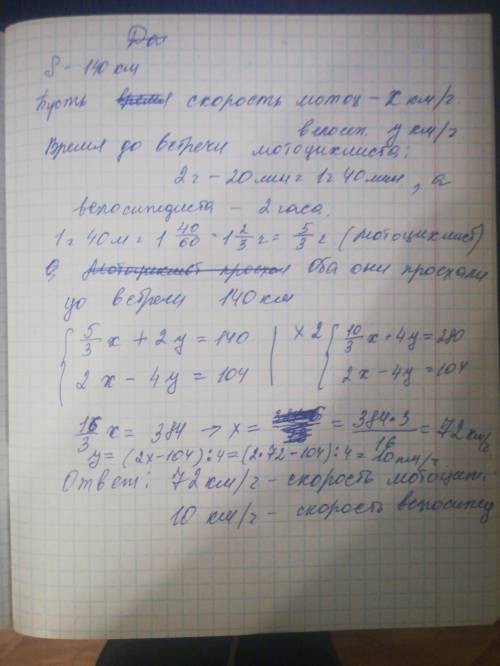 S - 140 км
Пусть время скорость мотоц - x км/г
велосип. y км/г
Время до встречи мотоциклиста:
2г - 20мин = 1г 40мин, а
велосипедиста - 2 часа.
1г 40м = 1 40/60 = 1 2/3 г = 5/3 г (мотоциклист)
О, Мотоциклист проехал Оба они проехали
до встречи 140 км
5/3 x + 2y = 140 | × 2 10/3 x + 4y = 280
2x - 4y = 104 2x - 4y = 104
16/3 x = 384 → x = = 384·3/16 = 72 км/г
y = (2x-104):4 = (2·72-104):4 = 10 км/г
Ответ: 72 км/г - скорость мотоцикл.
10 км/г - скорость велосипед